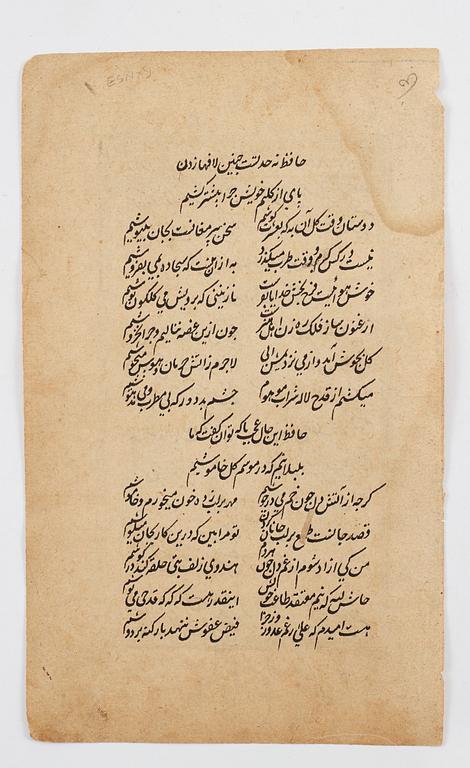 حافظ نه حد تست چنین لافها زدن
پای از گلیم خویش چرا بیشتر کشیم
دوستان وقت گل آن به که بعشرت کوشیم سخن پیر مغانست بجان بنیوشیم
نیست در کس کرم و وقت طرب میگذرد چاره آنست که سجاده بمی بفروشیم
خوش هوائیست فرح بخش خدایا بفرست نازنینی که برویش می گلگون نوشیم
ارغنون ساز فلک رهزن اهل هنرست چون ازین غصه ننالیم و چرا نخروشیم
گل بجوش آمد و از می نزدیمش آبی لاجرم زآتش حرمان و هوس میجوشیم
میکشیم از قدح لاله شراب موهوم چشم بد دور که بی مطرب و می مدهوشیم
حافظ این حال عجب با که توان گفت که ما
بلبلانیم که در موسم گل خاموشیم
گرچه از آتش دل چون خم می در جوشم مهر بر لب زده خون میخورم و خاموشم
قصد جانست طمع در لب جانان کردن تو مرا بین که درین کار بجان میکوشم
من کی آزاد شوم از غم دل چون هردم هندوی زلف بتی حلقه کند در گوشم
حاش لله که نیم معتقد طاعت خویش اینقدر هست که گه گه قدحی می نوشم
هست امیدم که علی رغم عدو روز جزا فیض عفوش ننهد بار گنه بر دوشم